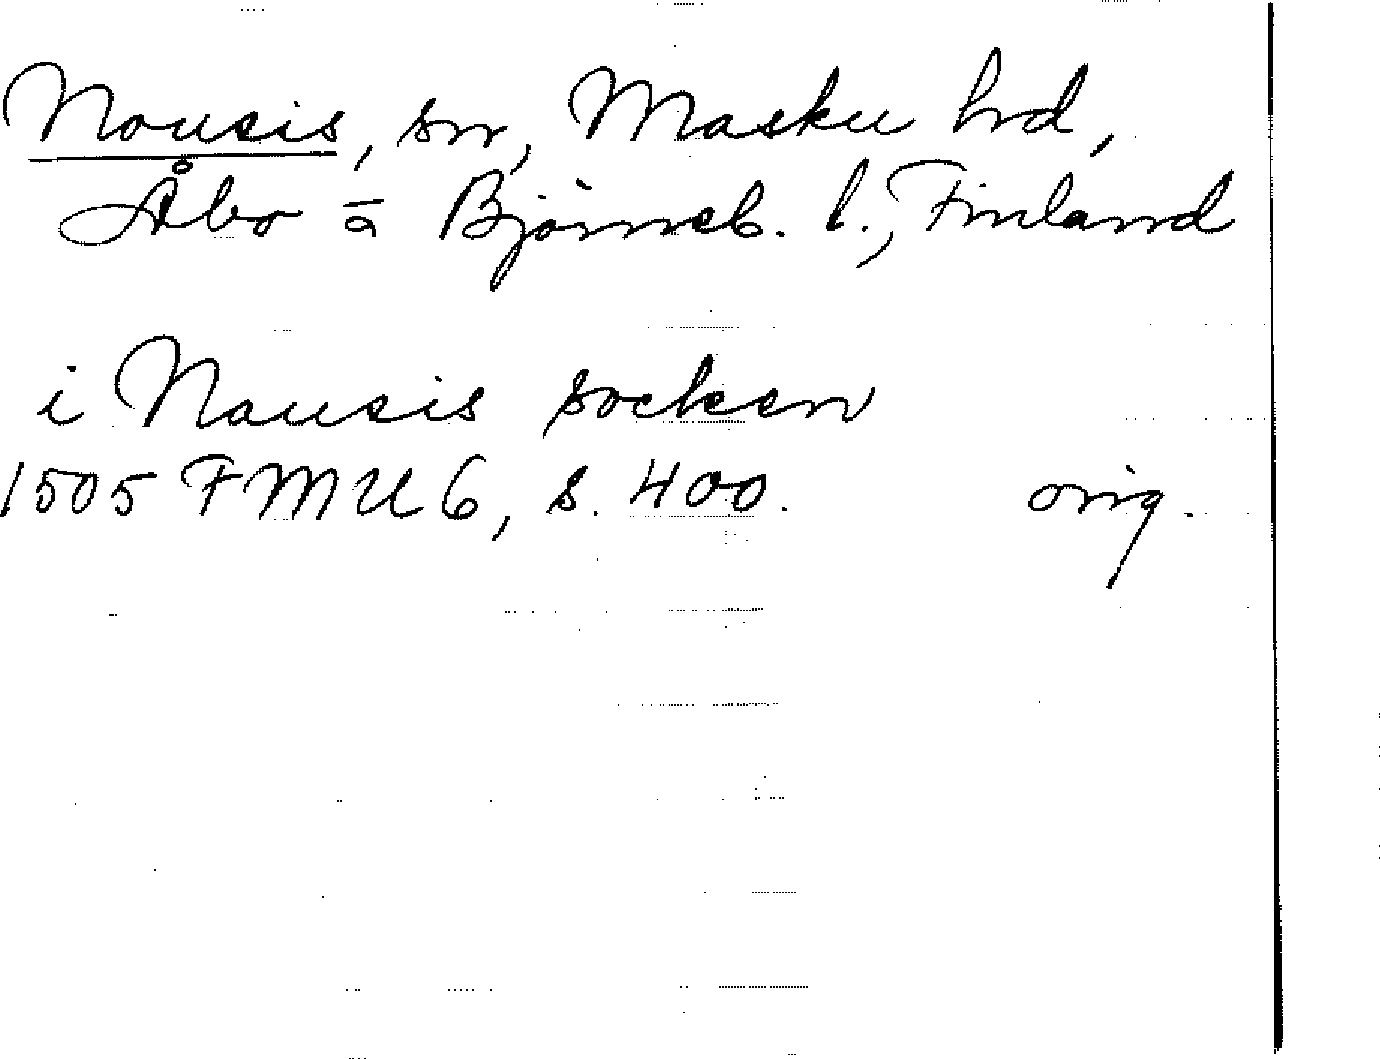 Nousis, sn, Masku hrd,
Åbo o Björneb. l., Finland
i Nausis socken
1505 FMU 6, s. 400. orig.